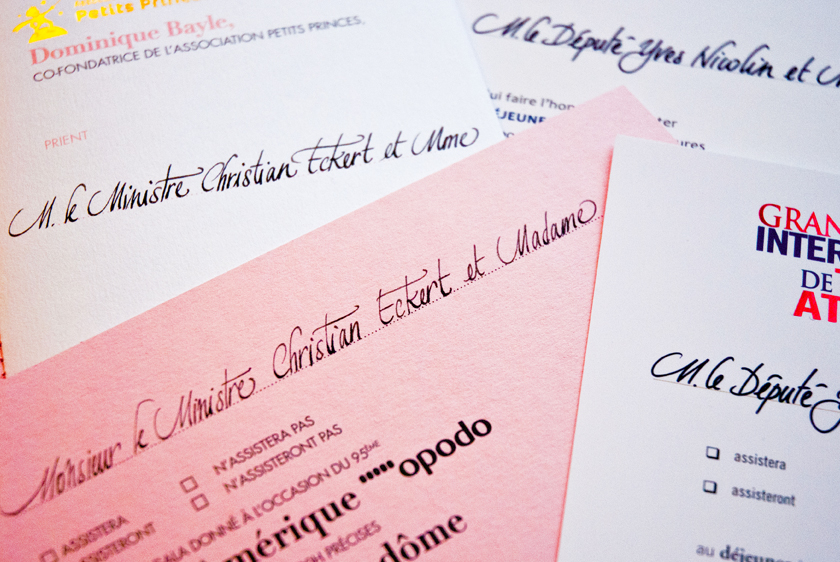 Petits Princ
Dominique Bayle,
CO-FONDATRICE DE L'ASSOCIATION PETITS PRINCES,
PRIENT
M. le Ministre Christian Eckert et Mme
M. le Député Yves Nicolin et M
ui faire l'hon
ÉJEUNE
ter
ures
Monsieur le Ministre Christian Eckert et Madame
ASSISTERA
N'ASSISTERA PAS
SSISTERONT
N'ASSISTERONT PAS
GALA DONNÉ À L'OCCASION DU 95ÈME
mérique opodo
0H PRÉCISES
dôme
GRAN
INTER
DE
AT
M. le Député Y
assistera
assisteront
au déjeune